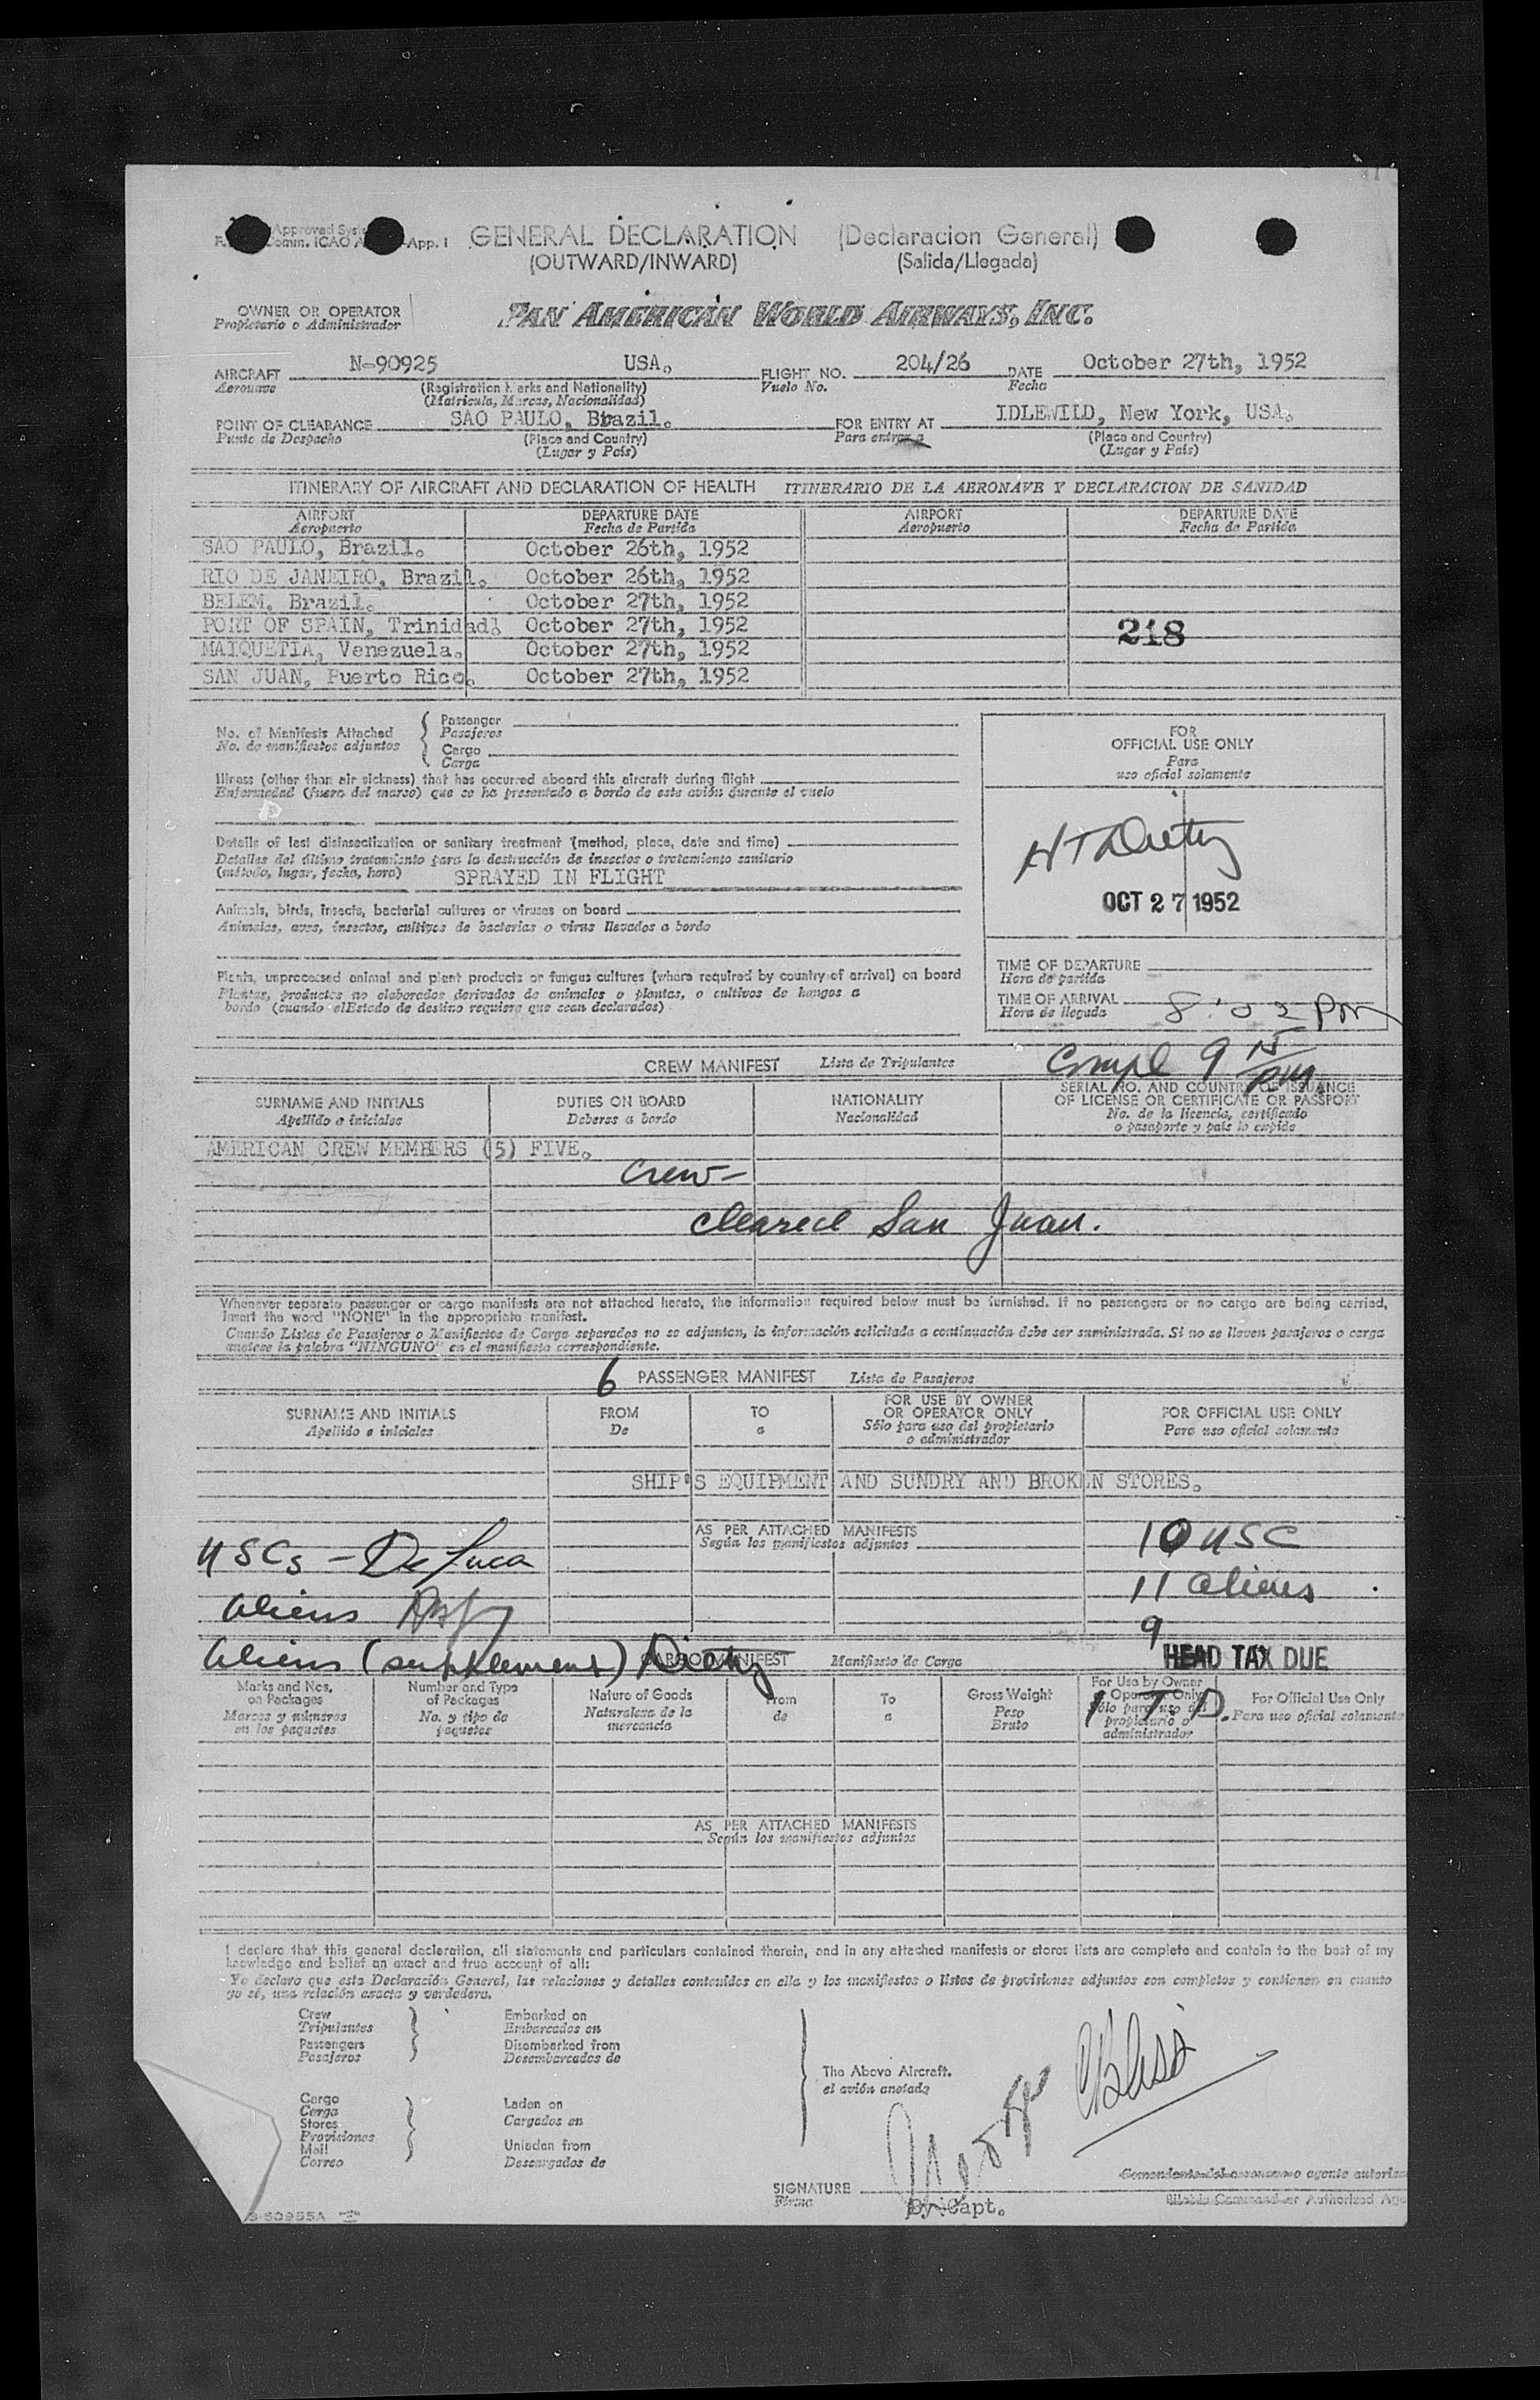 Approved
Comm. ICAO App. I
GENERAL DECLARATION (Declaracion General)
(OUTWARD/INWARD) (Salida/Llegada)
OWNER OR OPERATOR
Propietario o Administrador
PAN AMERICAN WORLD AIRWAYS, INC.
AIRCRAFT N-90925 USA. FLIGHT NO. 204/26 DATE October 27th, 1952
Aeronave (Registration Marks and Nationality) Vuelo No. Fecha
(Matricula, Marcas, Nacionalidad)
POINT OF CLEARANCE SAO PAULO, Brazil. FOR ENTRY AT IDLEWILD, New York, USA.
Punto de Despacho (Place and Country) Para entrar a (Place and Country)
(Lugar y País) (Lugar y País)
ITINERARY OF AIRCRAFT AND DECLARATION OF HEALTH ITINERARIO DE LA AERONAVE Y DECLARACION DE SANIDAD
AIRPORT DEPARTURE DATE AIRPORT DEPARTURE DATE
Aeropuerto Fecha de Partida Aeropuerto Fecha de Partida
SAO PAULO, Brazil. October 26th, 1952
RIO DE JANEIRO, Brazil. October 26th, 1952
BELEM, Brazil. October 27th, 1952
PORT OF SPAIN, Trinidad. October 27th, 1952
218
MAIQUETIA, Venezuela. October 27th, 1952
SAN JUAN, Puerto Rico. October 27th, 1952
No. of Manifests Attached
No. de manifiestos adjuntos
Passenger
Pasajeros
Cargo
Carga
Illness (other than air sickness) that has occurred aboard this aircraft during flight
Enfermedad (fuera del mareo) que se ha presentado a bordo de este avión durante el vuelo
Details of last disinsectization or sanitary treatment (method, place, date and time)
Detalles del último tratamiento para la destrucción de insectos o tratamiento sanitario
(método, lugar, fecha, hora) SPRAYED IN FLIGHT
Animals, birds, insects, bacterial cultures or viruses on board
Animales, aves, insectos, cultivos de bacterias o virus llevados a bordo
Plants, unprocessed animal and plant products or fungus cultures (where required by country of arrival) on board
Plantas, productos no elaborados derivados de animales o plantas, o cultivos de hongos a
bordo (cuando elEstado de destino requiera que sean declarados)
FOR
OFFICIAL USE ONLY
Para
uso oficial solamente
OCT 27 1952
TIME OF DEPARTURE
Hora de partida
TIME OF ARRIVAL 8:02 PM
Hora de llegada
Compl 9 15/pm
CREW MANIFEST Lista de Tripulantes
SURNAME AND INITIALS DUTIES ON BOARD NATIONALITY SERIAL NO. AND COUNTRY OF ISSUANCE
Apellido e iniciales Deberes a bordo Nacionalidad OF LICENSE OR CERTIFICATE OR PASSPORT
No. de la licencia, certificado
o pasaporte y país lo expide
AMERICAN CREW MEMBERS (5) FIVE.
Crew-
cleared San Juan.
Whenever separate passenger or cargo manifests are not attached hereto, the information required below must be furnished. If no passengers or no cargo are being carried,
insert the word "NONE" in the appropriate manifest.
Cuando Listas de Pasajeros o Manifiestos de Carga separados no se adjuntan, la información solicitada a continuación debe ser suministrada. Si no se lleven pasajeros o carga
anotese la palabra "NINGUNO" en el manifiesto correspondiente.
6 PASSENGER MANIFEST Lista de Pasajeros
SURNAME AND INITIALS FROM TO FOR USE BY OWNER FOR OFFICIAL USE ONLY
Apellido e iniciales De a OR OPERATOR ONLY Para uso oficial solamente
Sólo para uso del propietario
o administrador
SHIP'S EQUIPMENT AND SUNDRY AND BROKEN STORES.
AS PER ATTACHED MANIFESTS
Según los manifiestos adjuntos
USCs - De Luca 10 USC
Aliens 11 aliens
9
Aliens (supplement) Dietz HEAD TAX DUE
CARGO MANIFEST Manifiesto de Carga
1 T.D.
Marks and Nos. on Packages
Marcas y números en los paquetes
Number and Type of Packages
No. y tipo de paquetes
Nature of Goods
Naturaleza de la mercancia
From
de
To
a
Gross Weight
Peso
Bruto
For Use by Owner
or Operator Only
Sólo para uso del
propietario o
administrador
For Official Use Only
Para uso oficial solamente
AS PER ATTACHED MANIFESTS
Según los manifiestos adjuntos
I declare that this general declaration, all statements and particulars contained therein, and in any attached manifests or stores lists are complete and contain to the best of my
knowledge and belief an exact and true account of all:
Yo declaro que esta Declaración General, las relaciones y detalles contenidos en ella y los manifiestos o listas de provisiones adjuntos son completos y contienen en cuanto
yo sé, una relación exacta y verdadera.
Crew Embarked on
Tripulantes Embarcados en
Passengers Disembarked from
Pasajeros Desembarcados de
The Above Aircraft.
el avión anotado
Cargo Laden on
Carga Cargados en
Stores
Provisiones
Mail Unladen from
Correo Descargados de
SIGNATURE
Firma
By Capt.
Comandante del aeronave o agente autoriza
Pilot in Command or Authorized Age